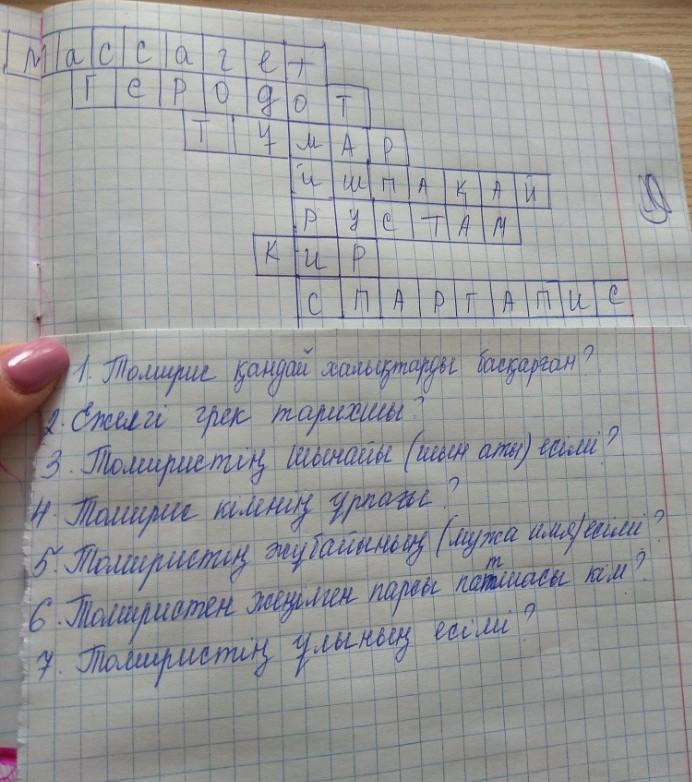 Массагет
ГЕРОдОТ
ТУМАР
ИШПАҚАЙ
РУСТАМ
КИР
СПАРГАПИС
1. Томирис қандай халықтарды басқарған?
2. Ежелгі грек тарихшы?
3. Томиристің шынайы (шын аты) есімі?
4. Томирис кімнің ұрпағы?
5. Томиристің жұбайының (мужа имя) есімі?
6. Томиристен жеңілген парсы патшасы кім?
7. Томиристің ұлының есімі?